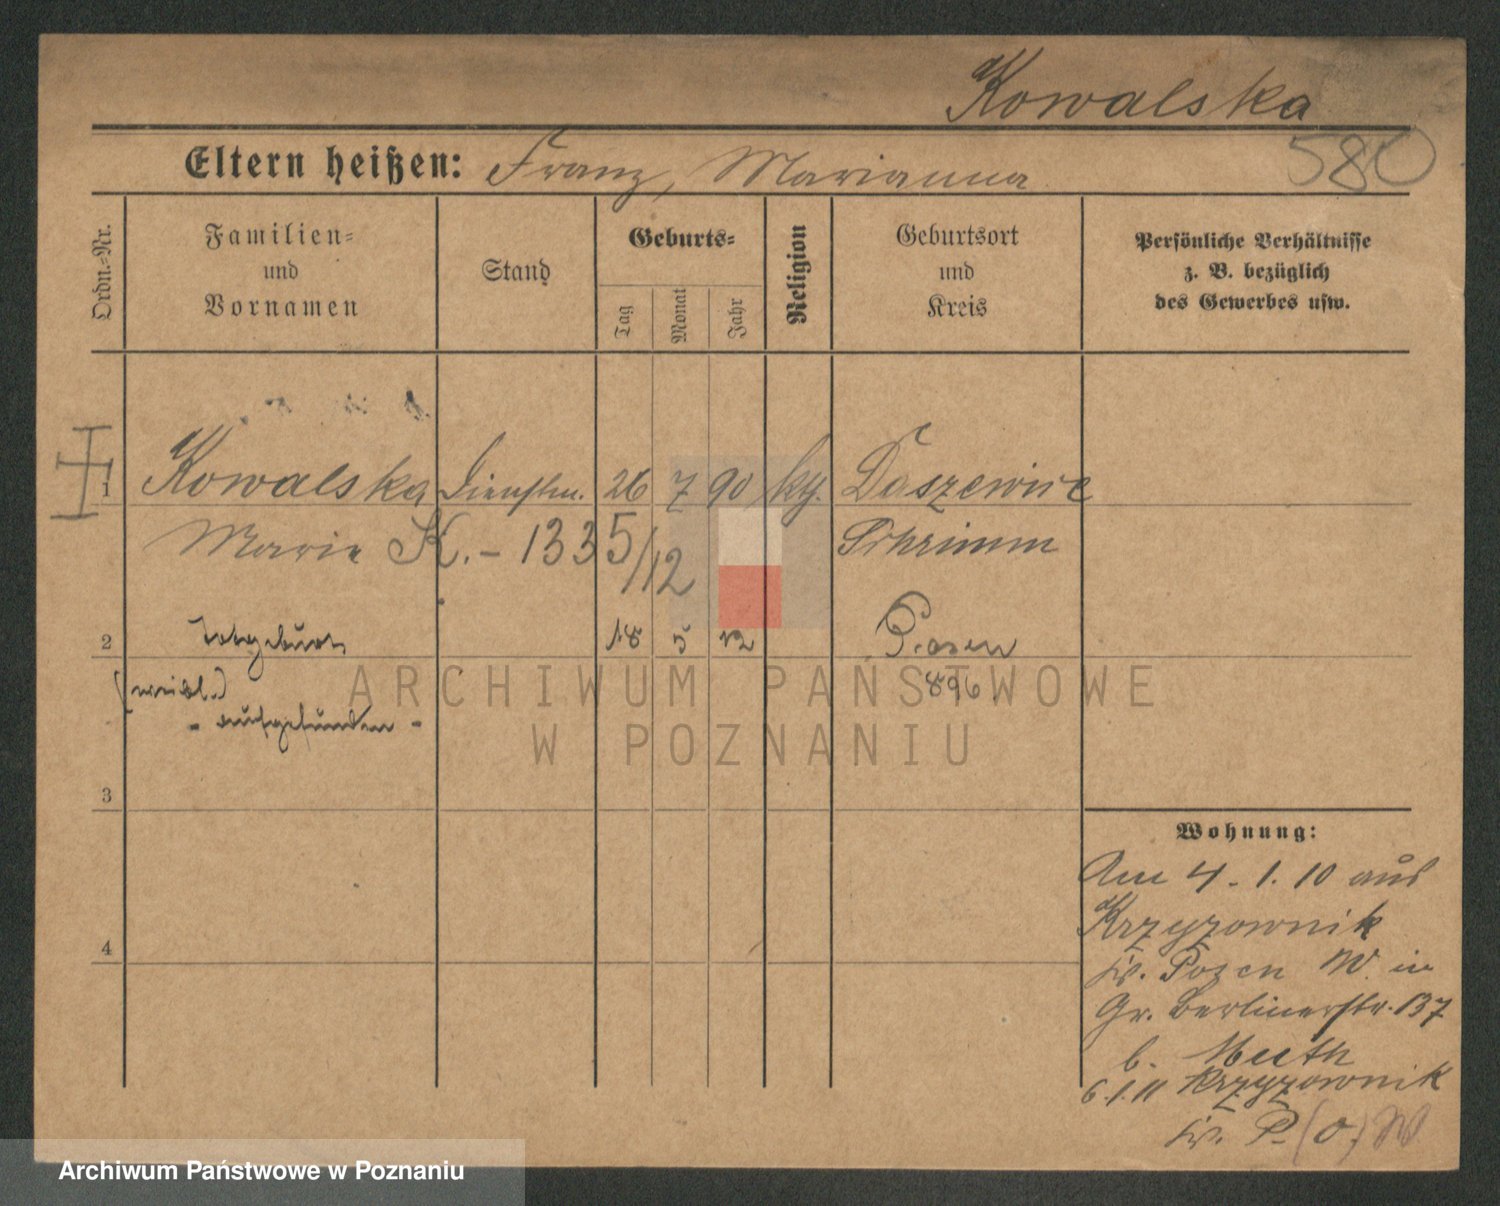 Kowalska
Eltern heißen: Franz, Marianna
580
Ordn.-Nr.
Familien-
und
Vornamen
Stand
Geburts-
Tag
Monat
Jahr
Religion
Geburtsort
und
Kreis
Persönliche Verhältnisse
z. B. bezüglich
des Gewerbes usw.
1 Kowalska Dienstm. 26 7 90 kth. Daszewice
Marie K. - 1335/12 Schrimm
2 Totgeburt 18 5 12 Posen
(weibl.) 896
- aufgefunden -
3
4
Wohnung:
Am 4. 1. 10 aus
Krzyzownik
Kr. Posen W. in
Gr. Berlinerstr. 137
b. Muth
6.1.11 Krzyzownik
Kr. P. (O.) W
ARCHIWUM PAŃSTWOWE
W POZNANIU
Archiwum Państwowe w Poznaniu